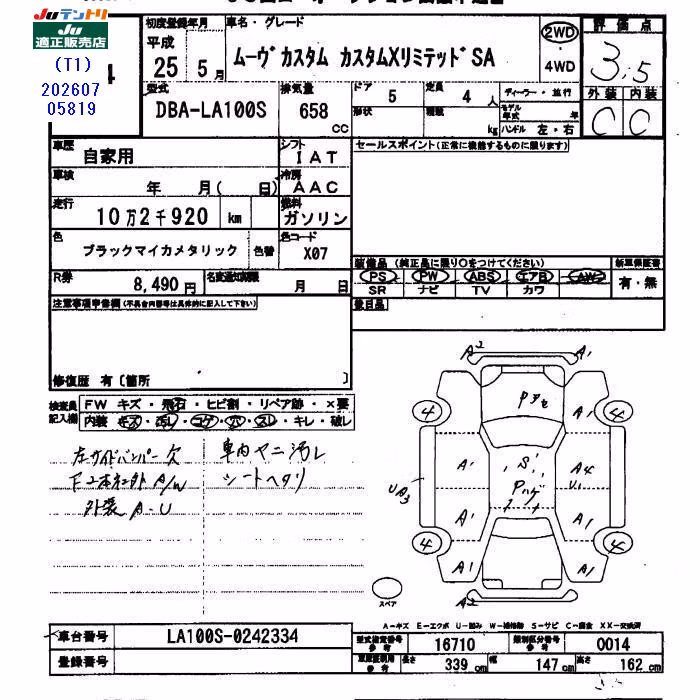 JUテントリ
JU
適正販売店
(T1)
202607
05819
初度登録年月
平成
25 5月
車名・グレード
ムーヴカスタム カスタムXリミテッドSA
2WD
4WD
評価点
3.5
外装 内装
C C
型式
DBA-LA100S
排気量
658
CC
ドア 5
定員 4 人
形状
積載 kg
ディーラー・並行
モデル年式 年
ハンドル 左・右
車歴
自家用
シフト
IAT
セールスポイント(正常に機能するものに限ります)
車検
年 月( 日)
冷房
AAC
走行
10万2千920 km
燃料
ガソリン
色
ブラックマイカメタリック 色替
色コード
X07
装備品 (純正品に限り○をつけてください)
新車保証書
PS PW ABS エアB AW
SR ナビ TV カワ
有・無
R券
8,490円
名変通知期限
月 日
後日品
注意事項申告欄(不具合内容等は具体的に記入して下さい)
修復歴 有 〔箇所 〕
検査員記入欄
FW キズ・飛石・ヒビ割・リペア跡・×要
内装 キズ・汚レ・コゲ・穴・スレ・キレ・破レ
左サイドバンパー欠
車内ヤニ汚レ
シートヘタリ
外装 A-U
A2
A1
4
4
A1
S1
A4
U1
UA3
A1
A1
4
4
A1
A1
A2
スペア
A-キズ E-エクボ U-凹み W-補修跡 S-サビ C-腐食 XX-交換済
車台番号
LA100S-0242334
型式指定番号 参考
16710
類別区分番号 参考
0014
登録番号
車両証明用 参考
長さ 339 cm
幅 147 cm
高さ 162 cm